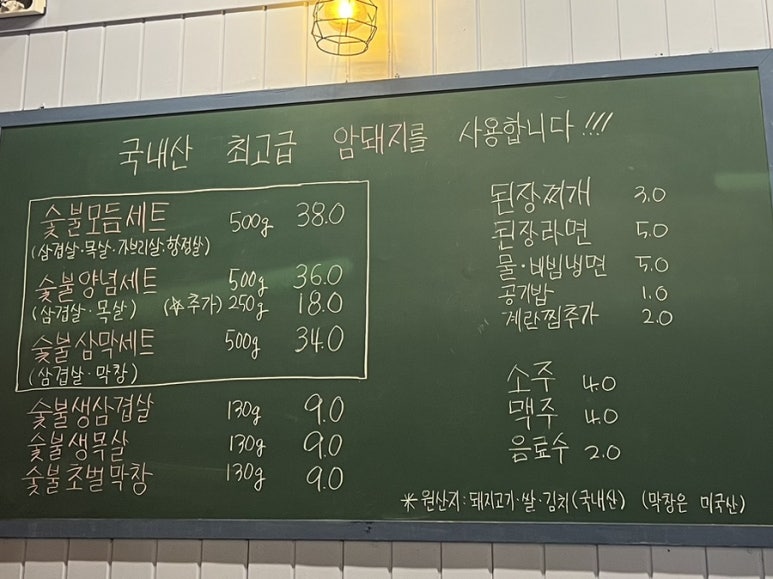 국내산 최고급 암돼지를 사용합니다!!!
숯불모듬세트 500g 38.0
(삼겹살·목살·가브리살·항정살)
숯불양념세트 500g 36.0
(삼겹살·목살) (*추가) 250g 18.0
숯불삼막세트 500g 34.0
(삼겹살·막창)
숯불생삼겹살 130g 9.0
숯불생목살 130g 9.0
숯불초벌막창 130g 9.0
된장찌개 3.0
된장라면 5.0
물·비빔냉면 5.0
공기밥 1.0
계란찜추가 2.0
소주 4.0
맥주 4.0
음료수 2.0
*원산지:돼지고기·쌀·김치(국내산) (막창은 미국산)